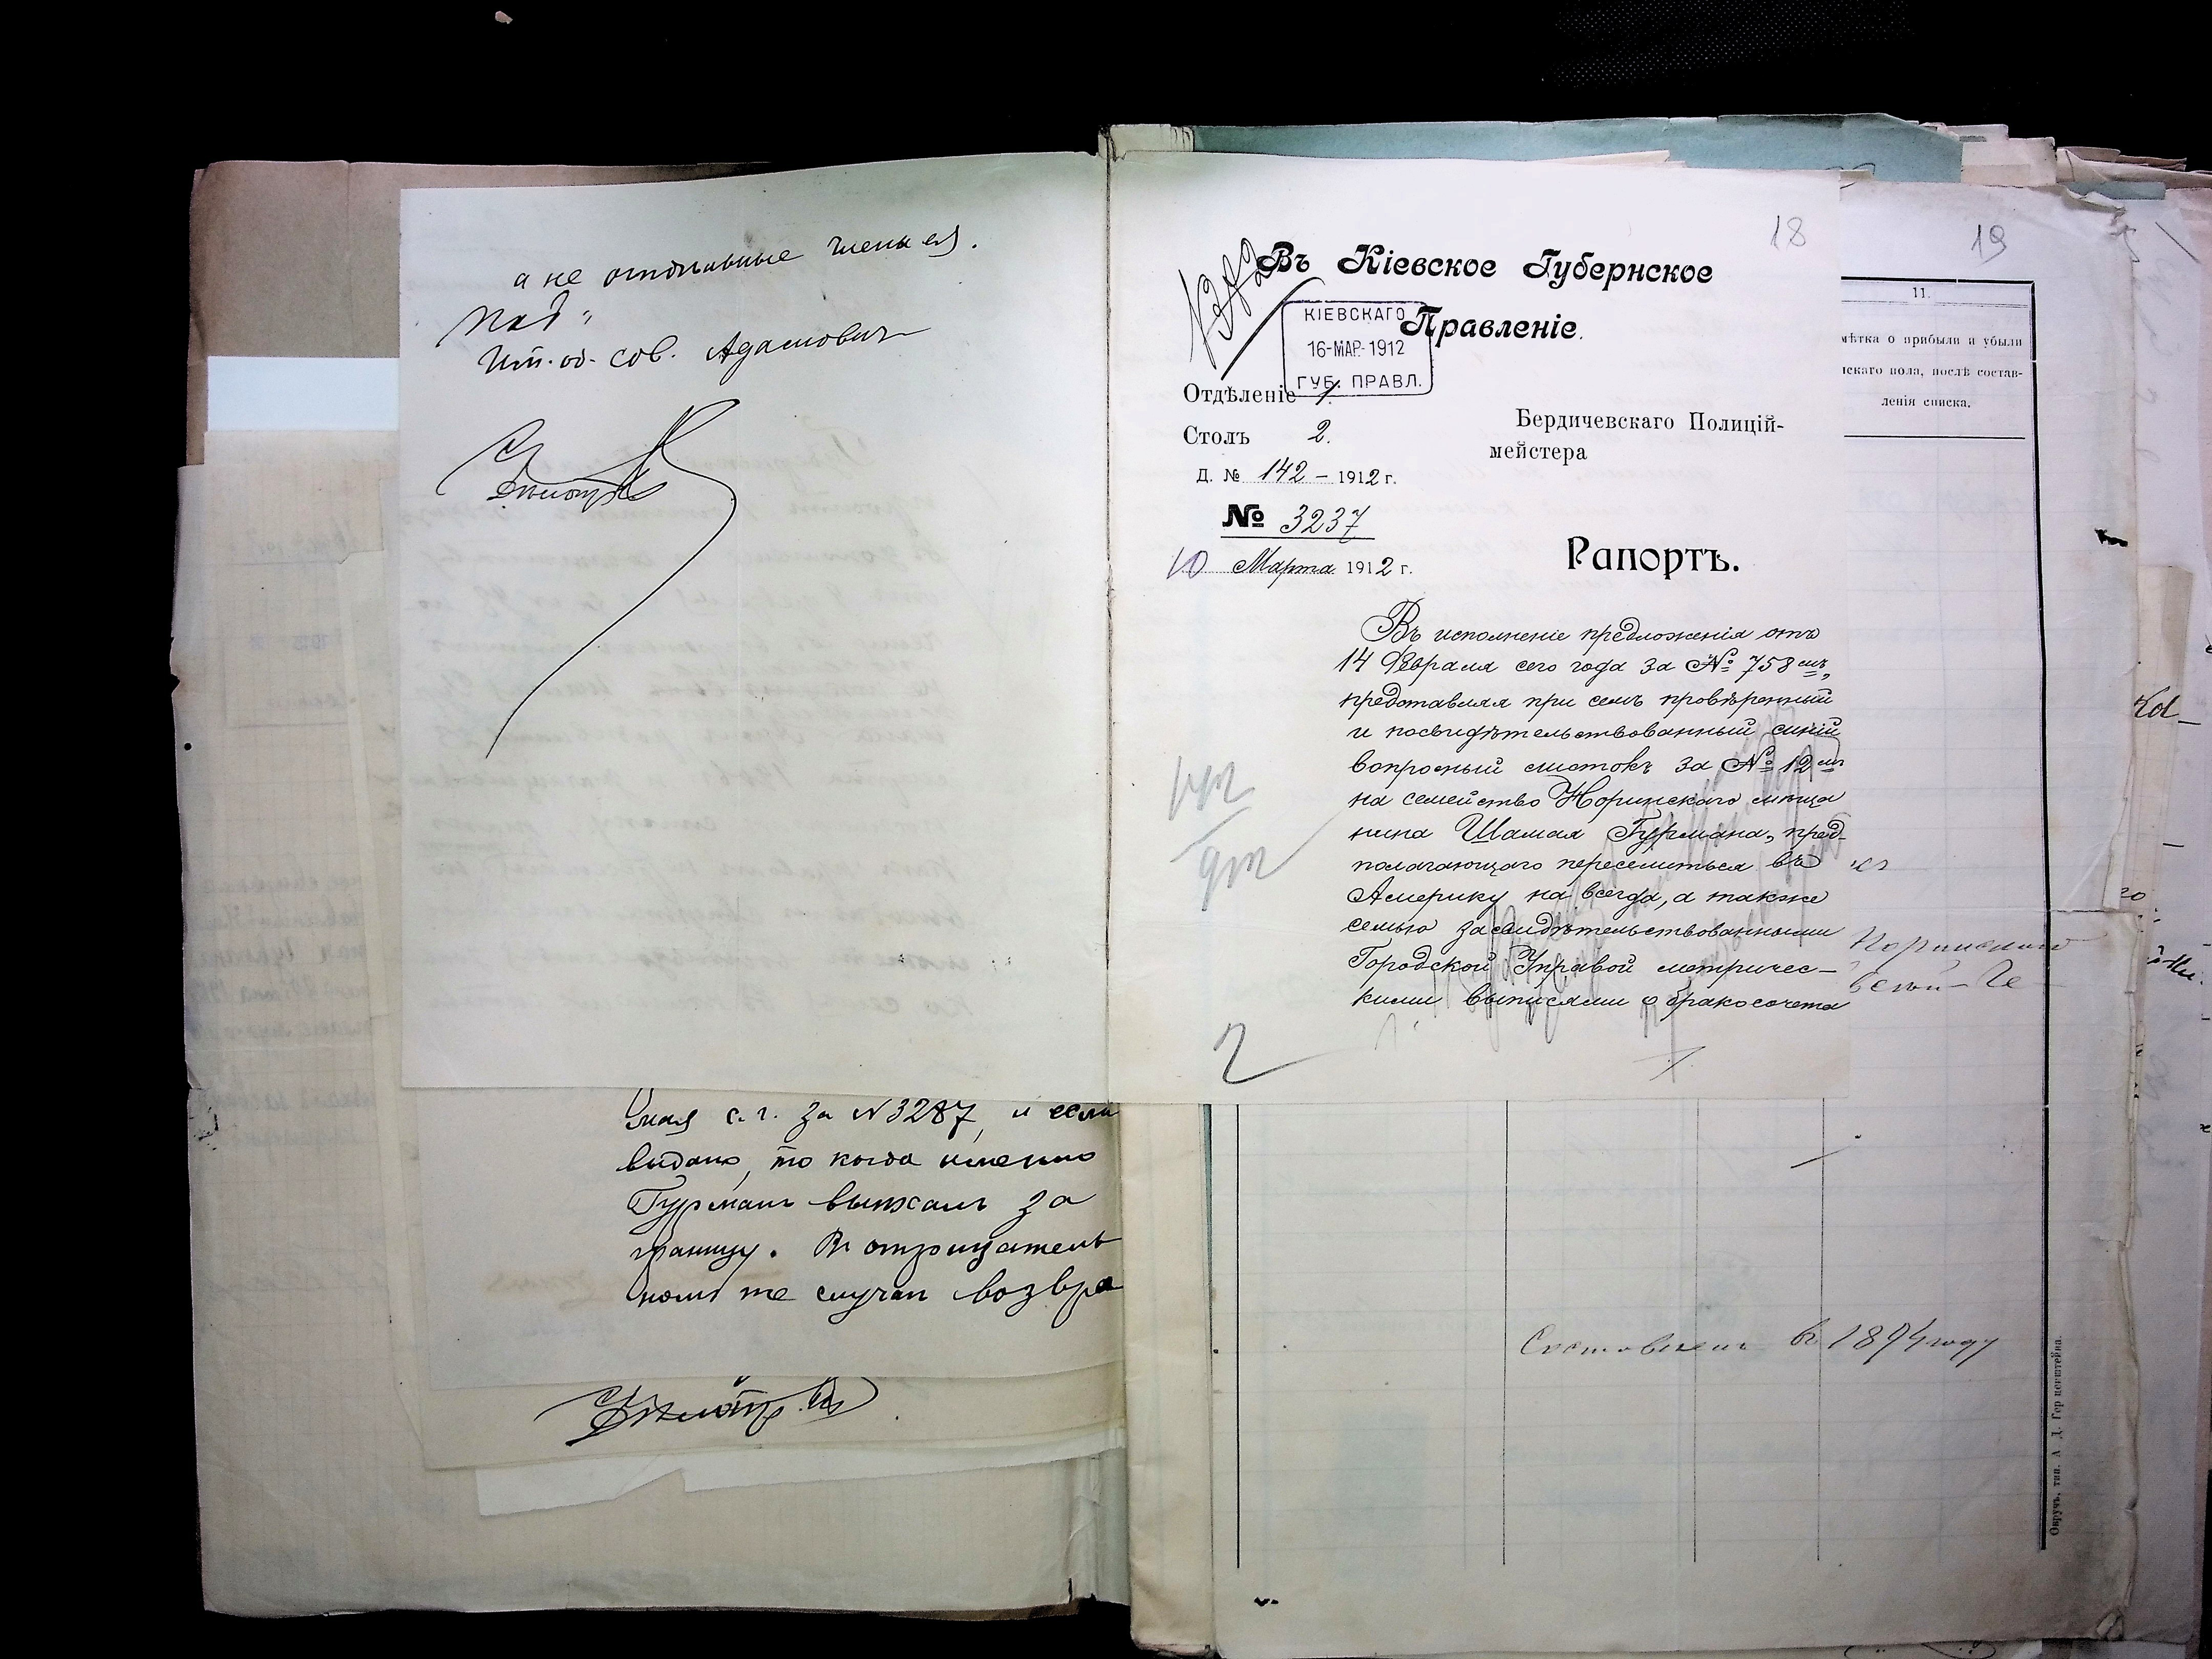 а не отдѣльные члены ея.
Под.
Шт. об. сов. Адамовичъ
мая с. г. за № 3287, и если
выдано, то когда именно
Гурманъ выѣхалъ за
границу. Въ отрицатель
номъ же случаѣ возвра
18
Въ Кіевское Губернское
Правленіе.
КІЕВСКАГО
16-МАР-1912
ГУБ. ПРАВЛ.
Отдѣленіе 1.
Столъ 2.
Д. № 142 – 1912 г.
№ 3237
10 Марта 1912 г.
Бердичевскаго Полицій-
мейстера
Рапортъ.
Въ исполненіе предложенія отъ
14 Февраля сего года за № 758 мъ,
представляя при семъ провѣренный
и посвидѣтельствованный синій
вопросный листокъ за № 12 мъ
на семейство Норинскаго мѣща
нина Шамая Гурмана, пред-
полагающаго переселиться въ
Америку на всегда, а также
семью засвидѣтельствованными
Городской Управой метричес-
кими выписями о бракосочета
2
19
11.
мѣтка о прибыли и убыли
нскаго пола, послѣ состав-
ленія списка.
Норинскаго
Составленъ въ 1894 году
Овручъ, тип. А. Д.